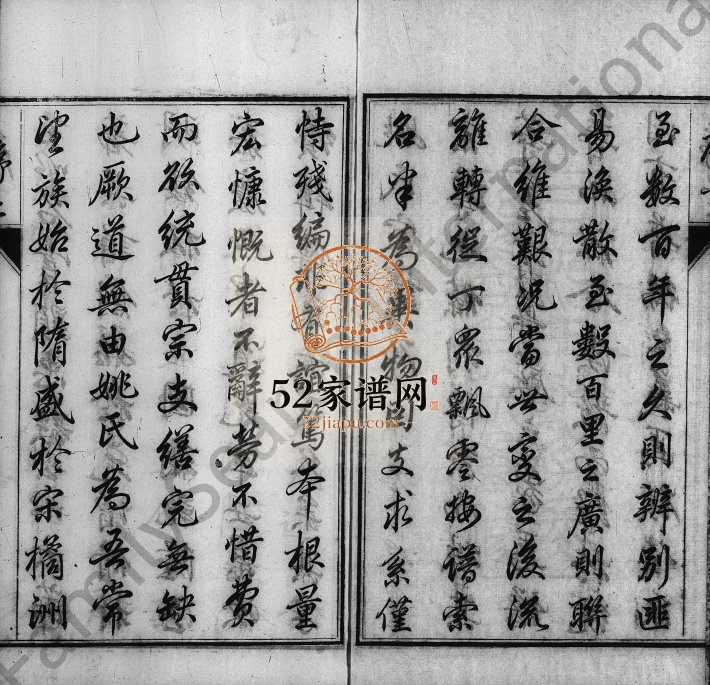 至數百年之久則辨别匪
易渙散至數百里之廣則聯
合維艱况當世變之後流
離轉徙丁衆飄零按譜索
名半為異物同支求系僅
恃殘編 有誼篤本根量
宏慷慨者不辭勞不惜費
而欲統貫宗支繕完無缺
也厥道無由姚氏為吾常
望族始於隋盛於宋橘洲
52家谱网
52jiapu.com
FamilySearch International